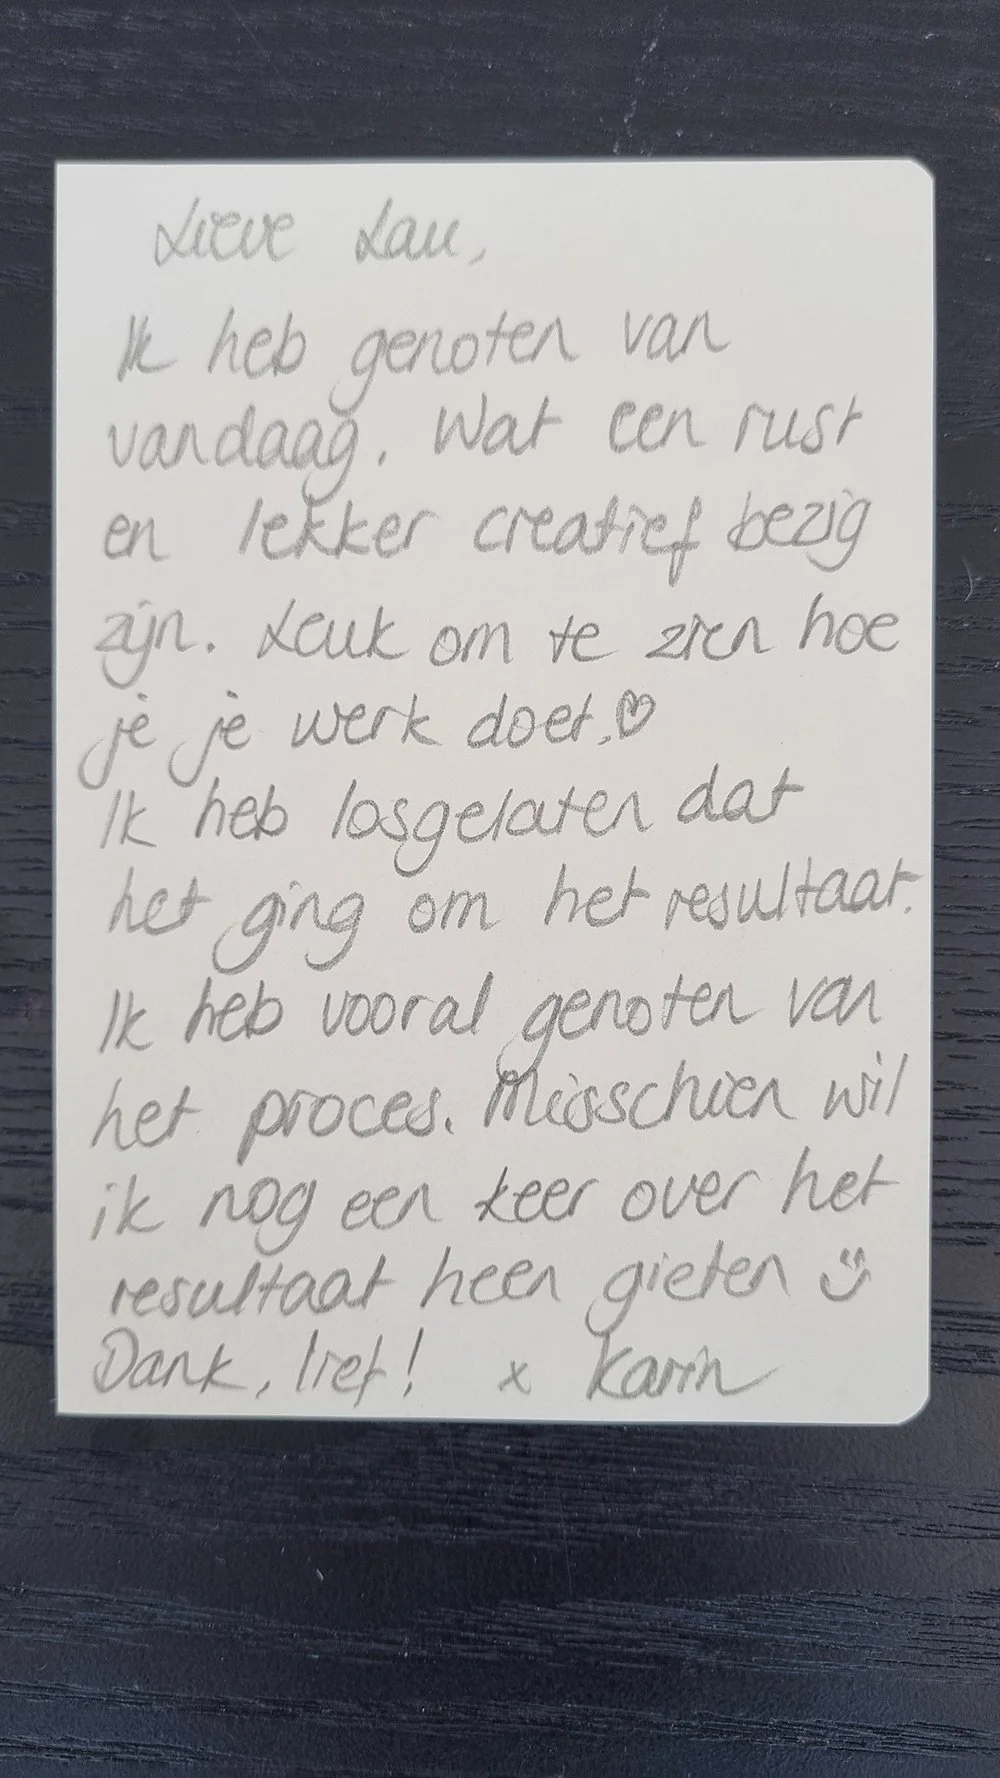 Lieve Lau,
Ik heb genoten van
vandaag. Wat een rust
en lekker creatief bezig
zijn. Leuk om te zien hoe
je je werk doet. ♡
Ik heb losgelaten dat
het ging om het resultaat.
Ik heb vooral genoten van
het proces. Misschien wil
ik nog een keer over het
resultaat heen gieten ü
Dank, lief! x Karin